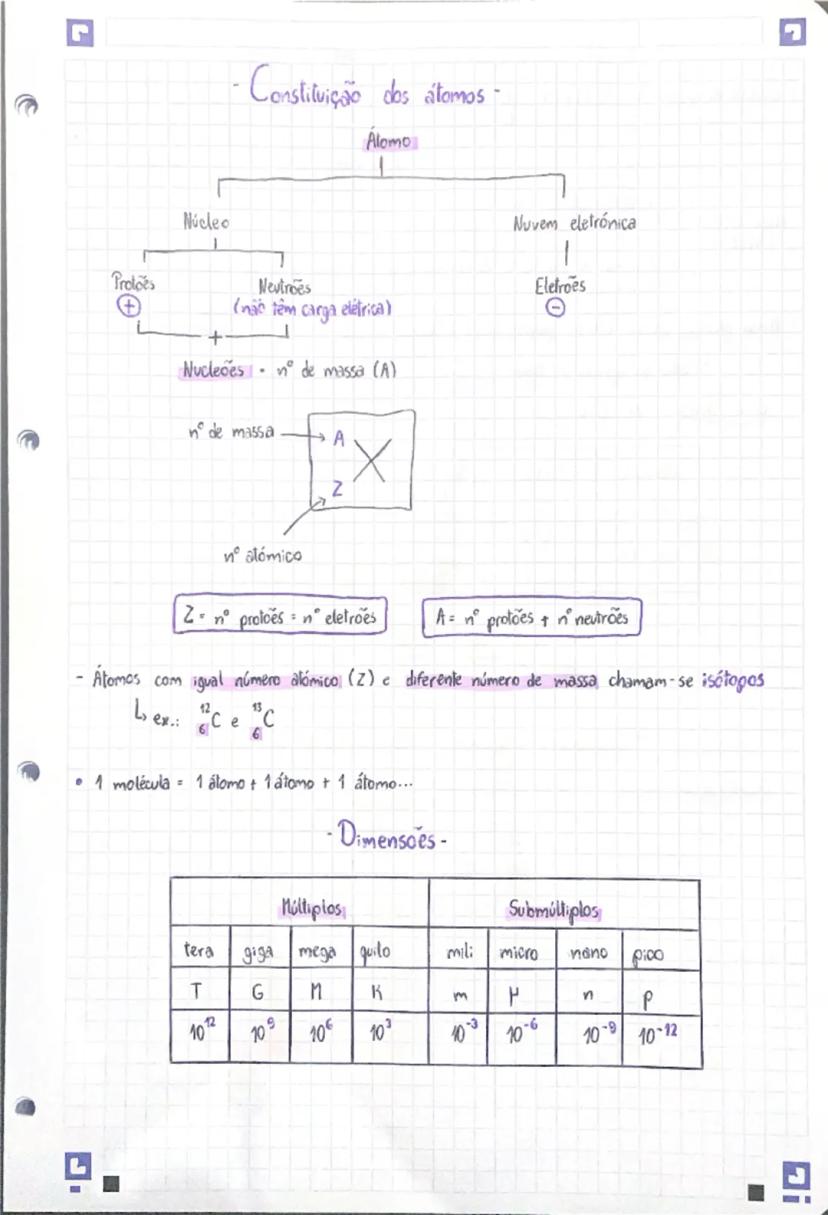 - Constituição dos átomos -
Átomo
Núcleo Nuvem eletrónica
Protões Neutrões Eletrões
+ (não têm carga elétrica) -
+
Nucleões = nº de massa (A)
nº de massa → A X
Z
nº atómico
Z = nº protões = nº eletrões A = nº protões + nº neutrões
- Átomos com igual número atómico (Z) e diferente número de massa chamam-se isótopos
↳ ex.: ¹²₆C e ¹³₆C
• 1 molécula = 1 átomo + 1 átomo + 1 átomo...
- Dimensões -
Múltiplos Submúltiplos
tera giga mega quilo mili micro nano pico
T G M K m μ n p
10¹² 10⁹ 10⁶ 10³ 10⁻³ 10⁻⁶ 10⁻⁹ 10⁻¹²